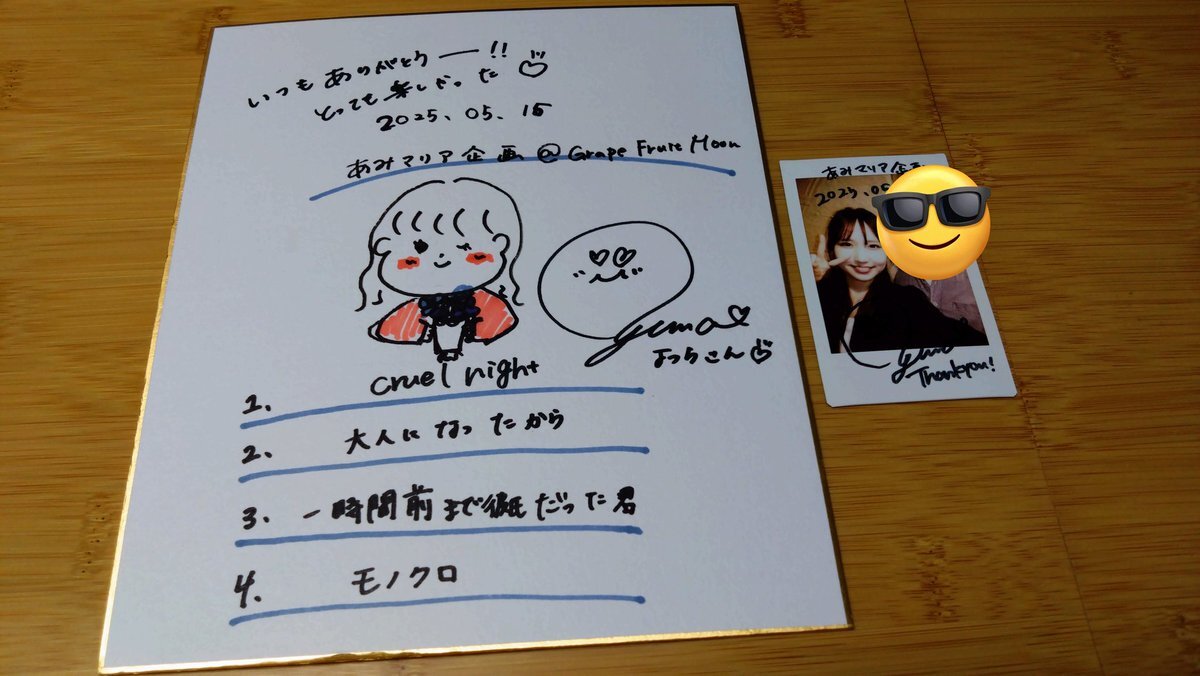 いつも ありがとうー!!
とっても楽しかった
2025.05.15
あみマリア企画 @ Grape Fruit Moon
yuma
よっちさん
cruel night
1.
2. 大人になったから
3. 一時間前まで彼氏だった君
4. モノクロ
あみマリア企画
2025.05
yuma
Thankyou!